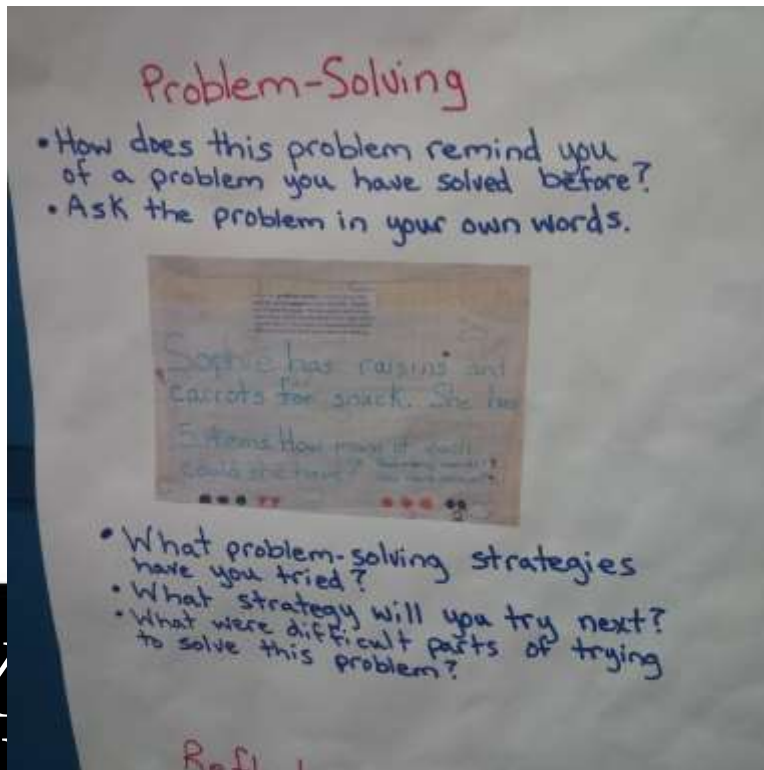 Problem-Solving
• How does this problem remind you
of a problem you have solved before?
• Ask the problem in your own words.
Sophie has raisins and
carrots for snack. She has
5 items How many of each
could she have?
• What problem-solving strategies
have you tried?
• What strategy will you try next?
• What were difficult parts of trying
to solve this problem?